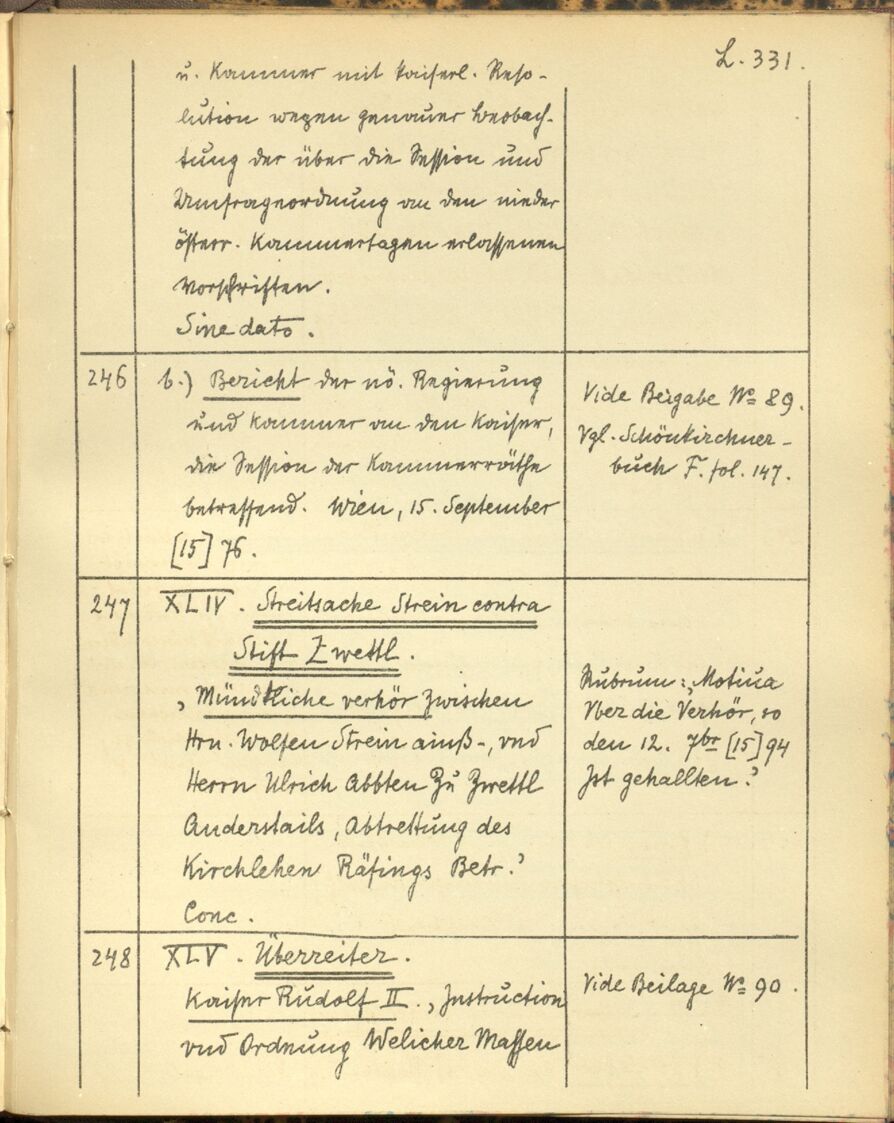 L. 331.
u. Kammer mit kaiserl. Reso-
lution wegen genauer Beobach-
tung der über die Session und
Umfrageordnung an den nieder
österr. Kammertagen erlassenen
Vorschriften.
Sine dato.
246
b.) Bericht der nö. Regierung
und Kammer an den Kaiser,
die Session der Kammerräthe
betreffend. Wien, 15. September
[15]76.
Vide Beigabe No 89.
Vgl. Schönkirchner-
buch F. fol. 147.
247
XLIV. Streitsache Strein contra
Stift Zwettl.
„Mündtliche verhör zwischen
Hrn. Wolfen Strein ainß-, vnd
Herrn Ulrich Abbten Zu Zwettl
Anderstails, Abtrettung des
Kirchlehen Räfings Betr.“
Conc.
Rubrum: „Motiua
Vber die Verhör, so
den 12. 7br [15]94
Jst gehallten.“
248
XLV. Überreiter.
Kaiser Rudolf II. „Instruction
vnd Ordnung Welicher Massen
Vide Beilage No 90.